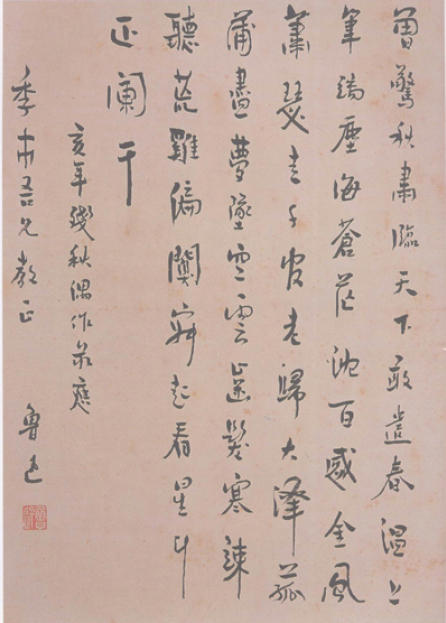 曾驚秋肅臨天下敢遣春溫上
筆端塵海蒼茫沈百感金風
蕭瑟走千官老歸大澤菰
蒲盡夢墜空雲齒髮寒竦
聽荒雞偏闃寂起看星斗
正闌干
亥年殘秋偶作录應
季市吾兄教正
魯迅